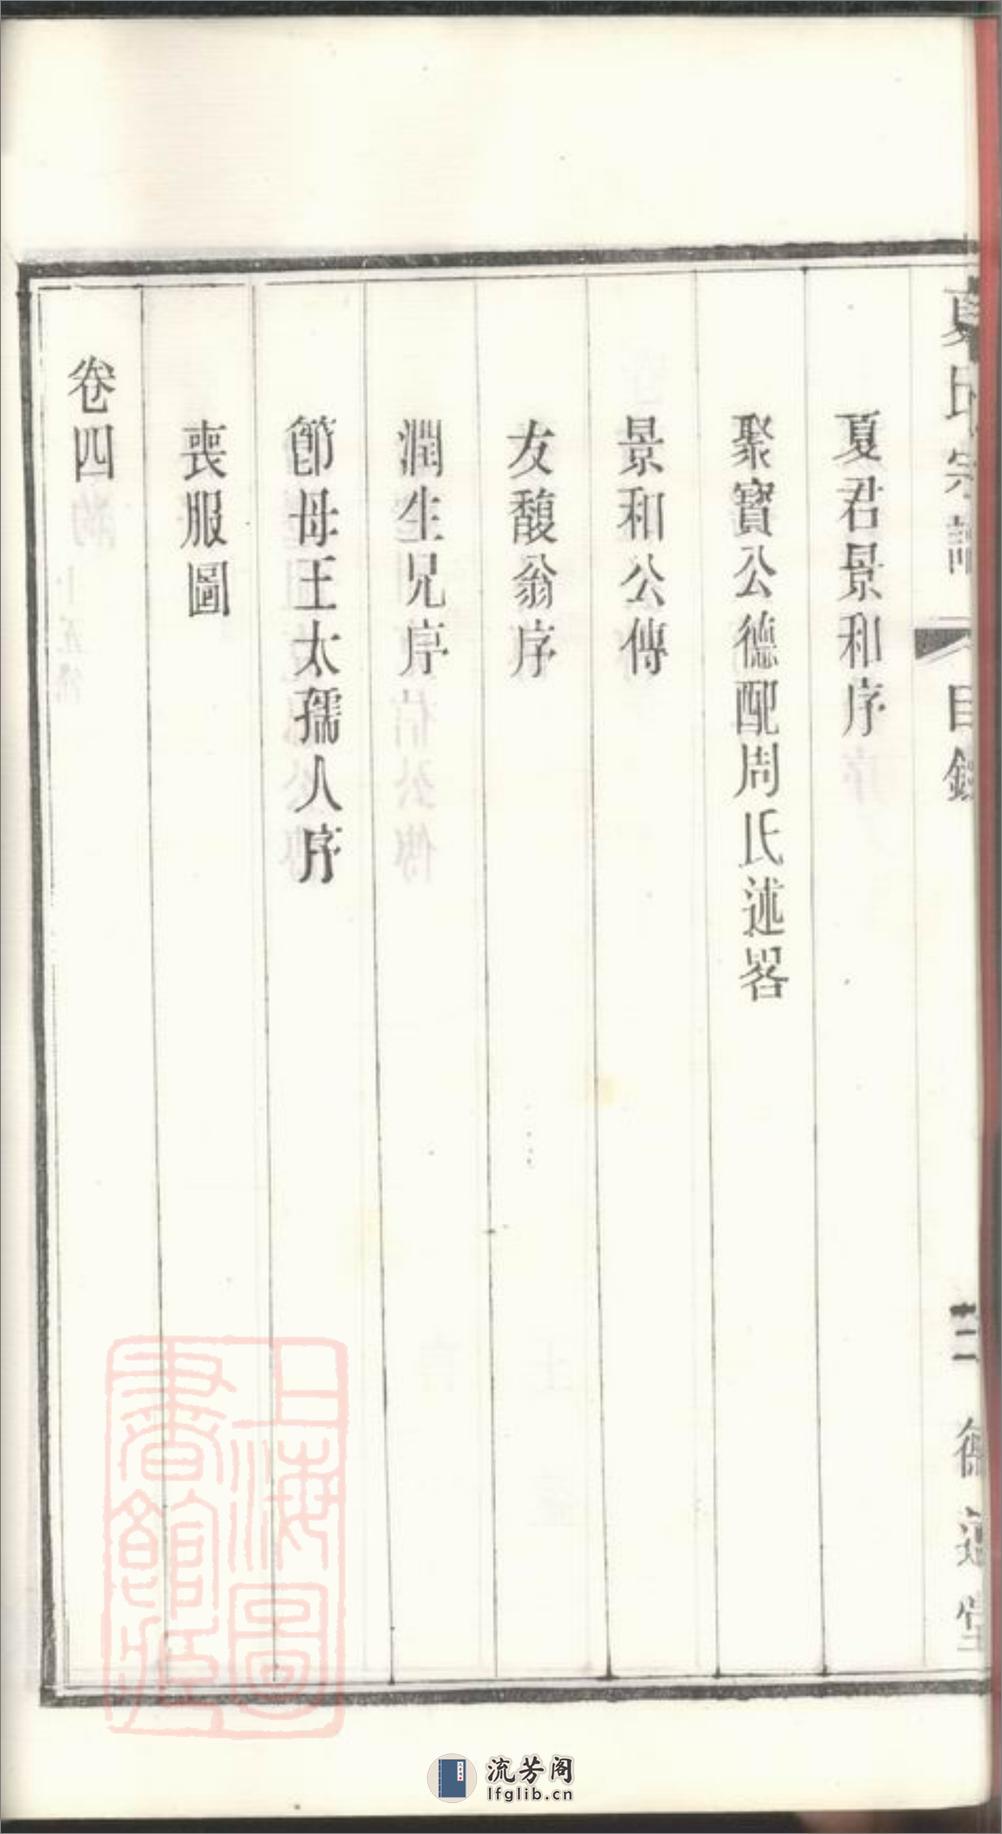 夏氏宗譜
目錄
二
堂
夏君景和序
聚寳公德配周氏述畧
景和公傳
友馥翁序
潤生兄序
節母王太孺人序
喪服圖
卷四
上海圖書館藏
流芳阁
lfglib.cn